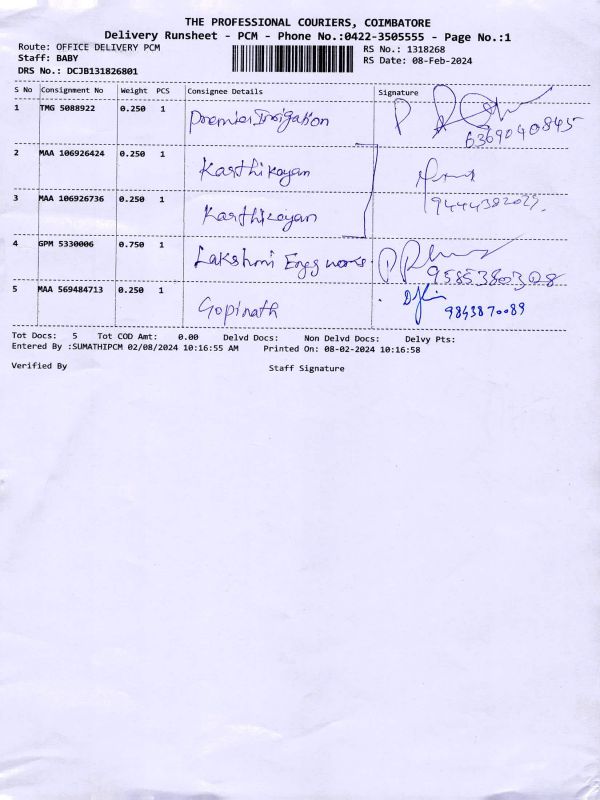 THE PROFESSIONAL COURIERS, COIMBATORE
Delivery Runsheet - PCM - Phone No.:0422-3505555 - Page No.:1
Route: OFFICE DELIVERY PCM RS No.: 1318268
Staff: BABY RS Date: 08-Feb-2024
DRS No.: DCJB131826801
S No Consignment No Weight PCS Consignee Details Signature
1 TMG 5088922 0.250 1 Premier Irrigation
6369040845
2 MAA 106926424 0.250 1 Karthikeyan
3 MAA 106926736 0.250 1 Karthikeyan
4 GPM 5330006 0.750 1 Lakshmi Engg works
9585380308
5 MAA 569484713 0.250 1 Gopinath
9843870089
Tot Docs: 5 Tot COD Amt: 0.00 Delvd Docs: Non Delvd Docs: Delvy Pts:
Entered By :SUMATHIPCM 02/08/2024 10:16:55 AM Printed On: 08-02-2024 10:16:58
Verified By Staff Signature